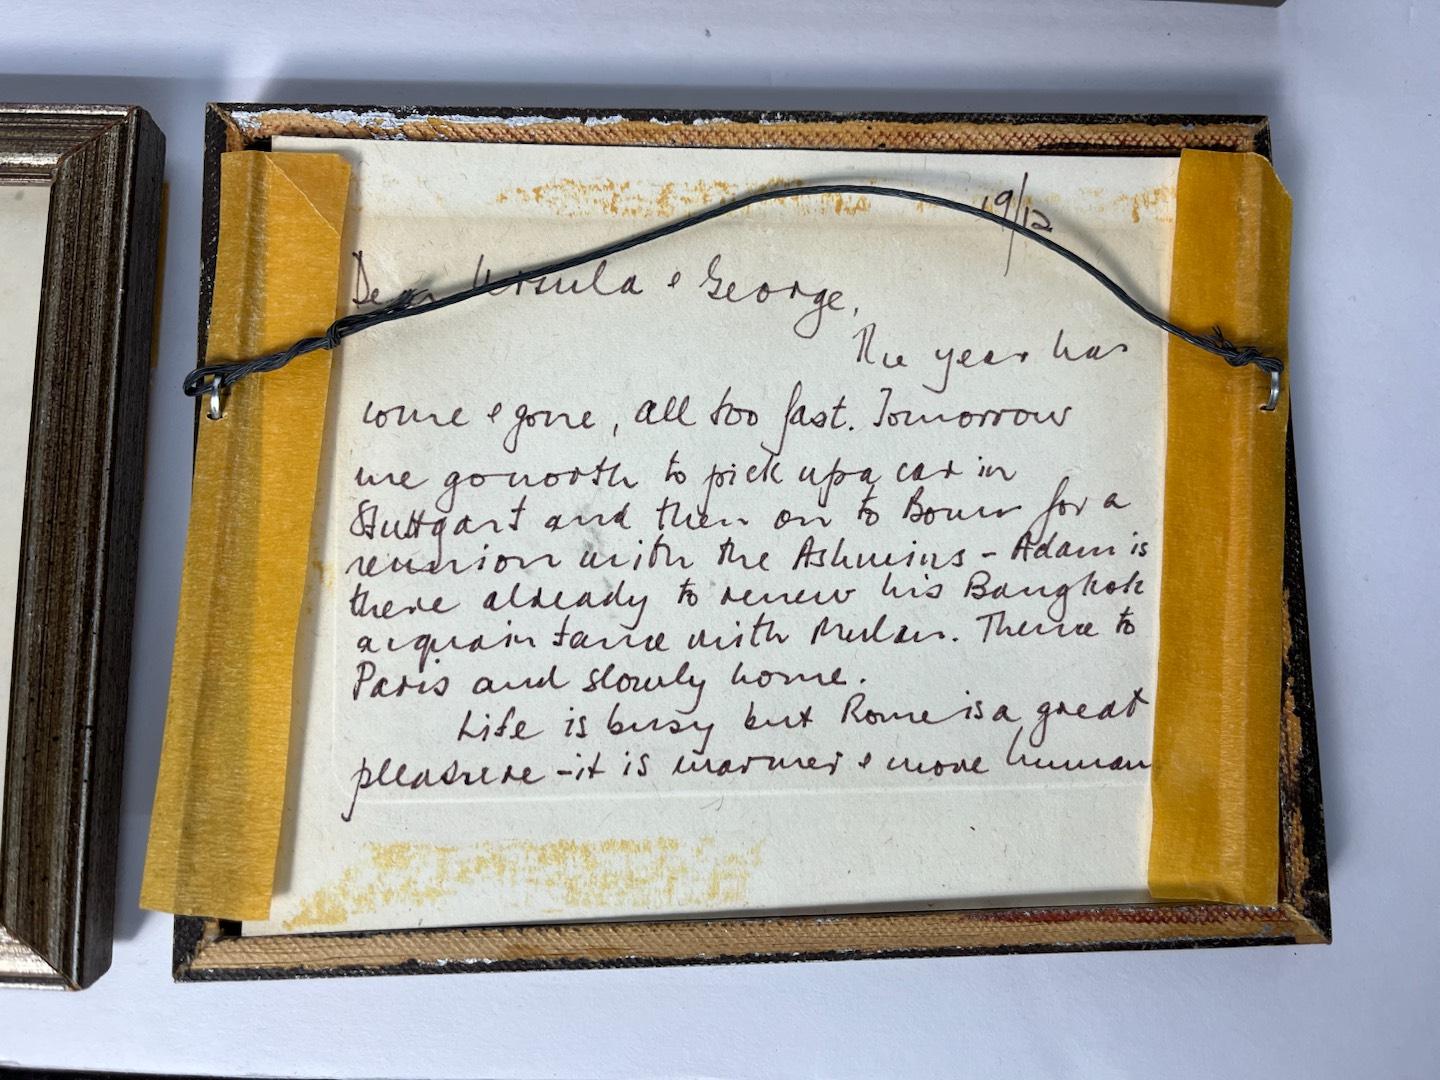 19/12
Dear Ursula & George,
The year has
come & gone, all too fast. Tomorrow
we go north to pick up a car in
Stuttgart and then on to Bonn for a
reunion with the Ashwins - Adam is
there already to renew his Bangkok
acquaintance with . Thence to
Paris and slowly home.
Life is busy but Rome is a great
pleasure - it is warmer & more human